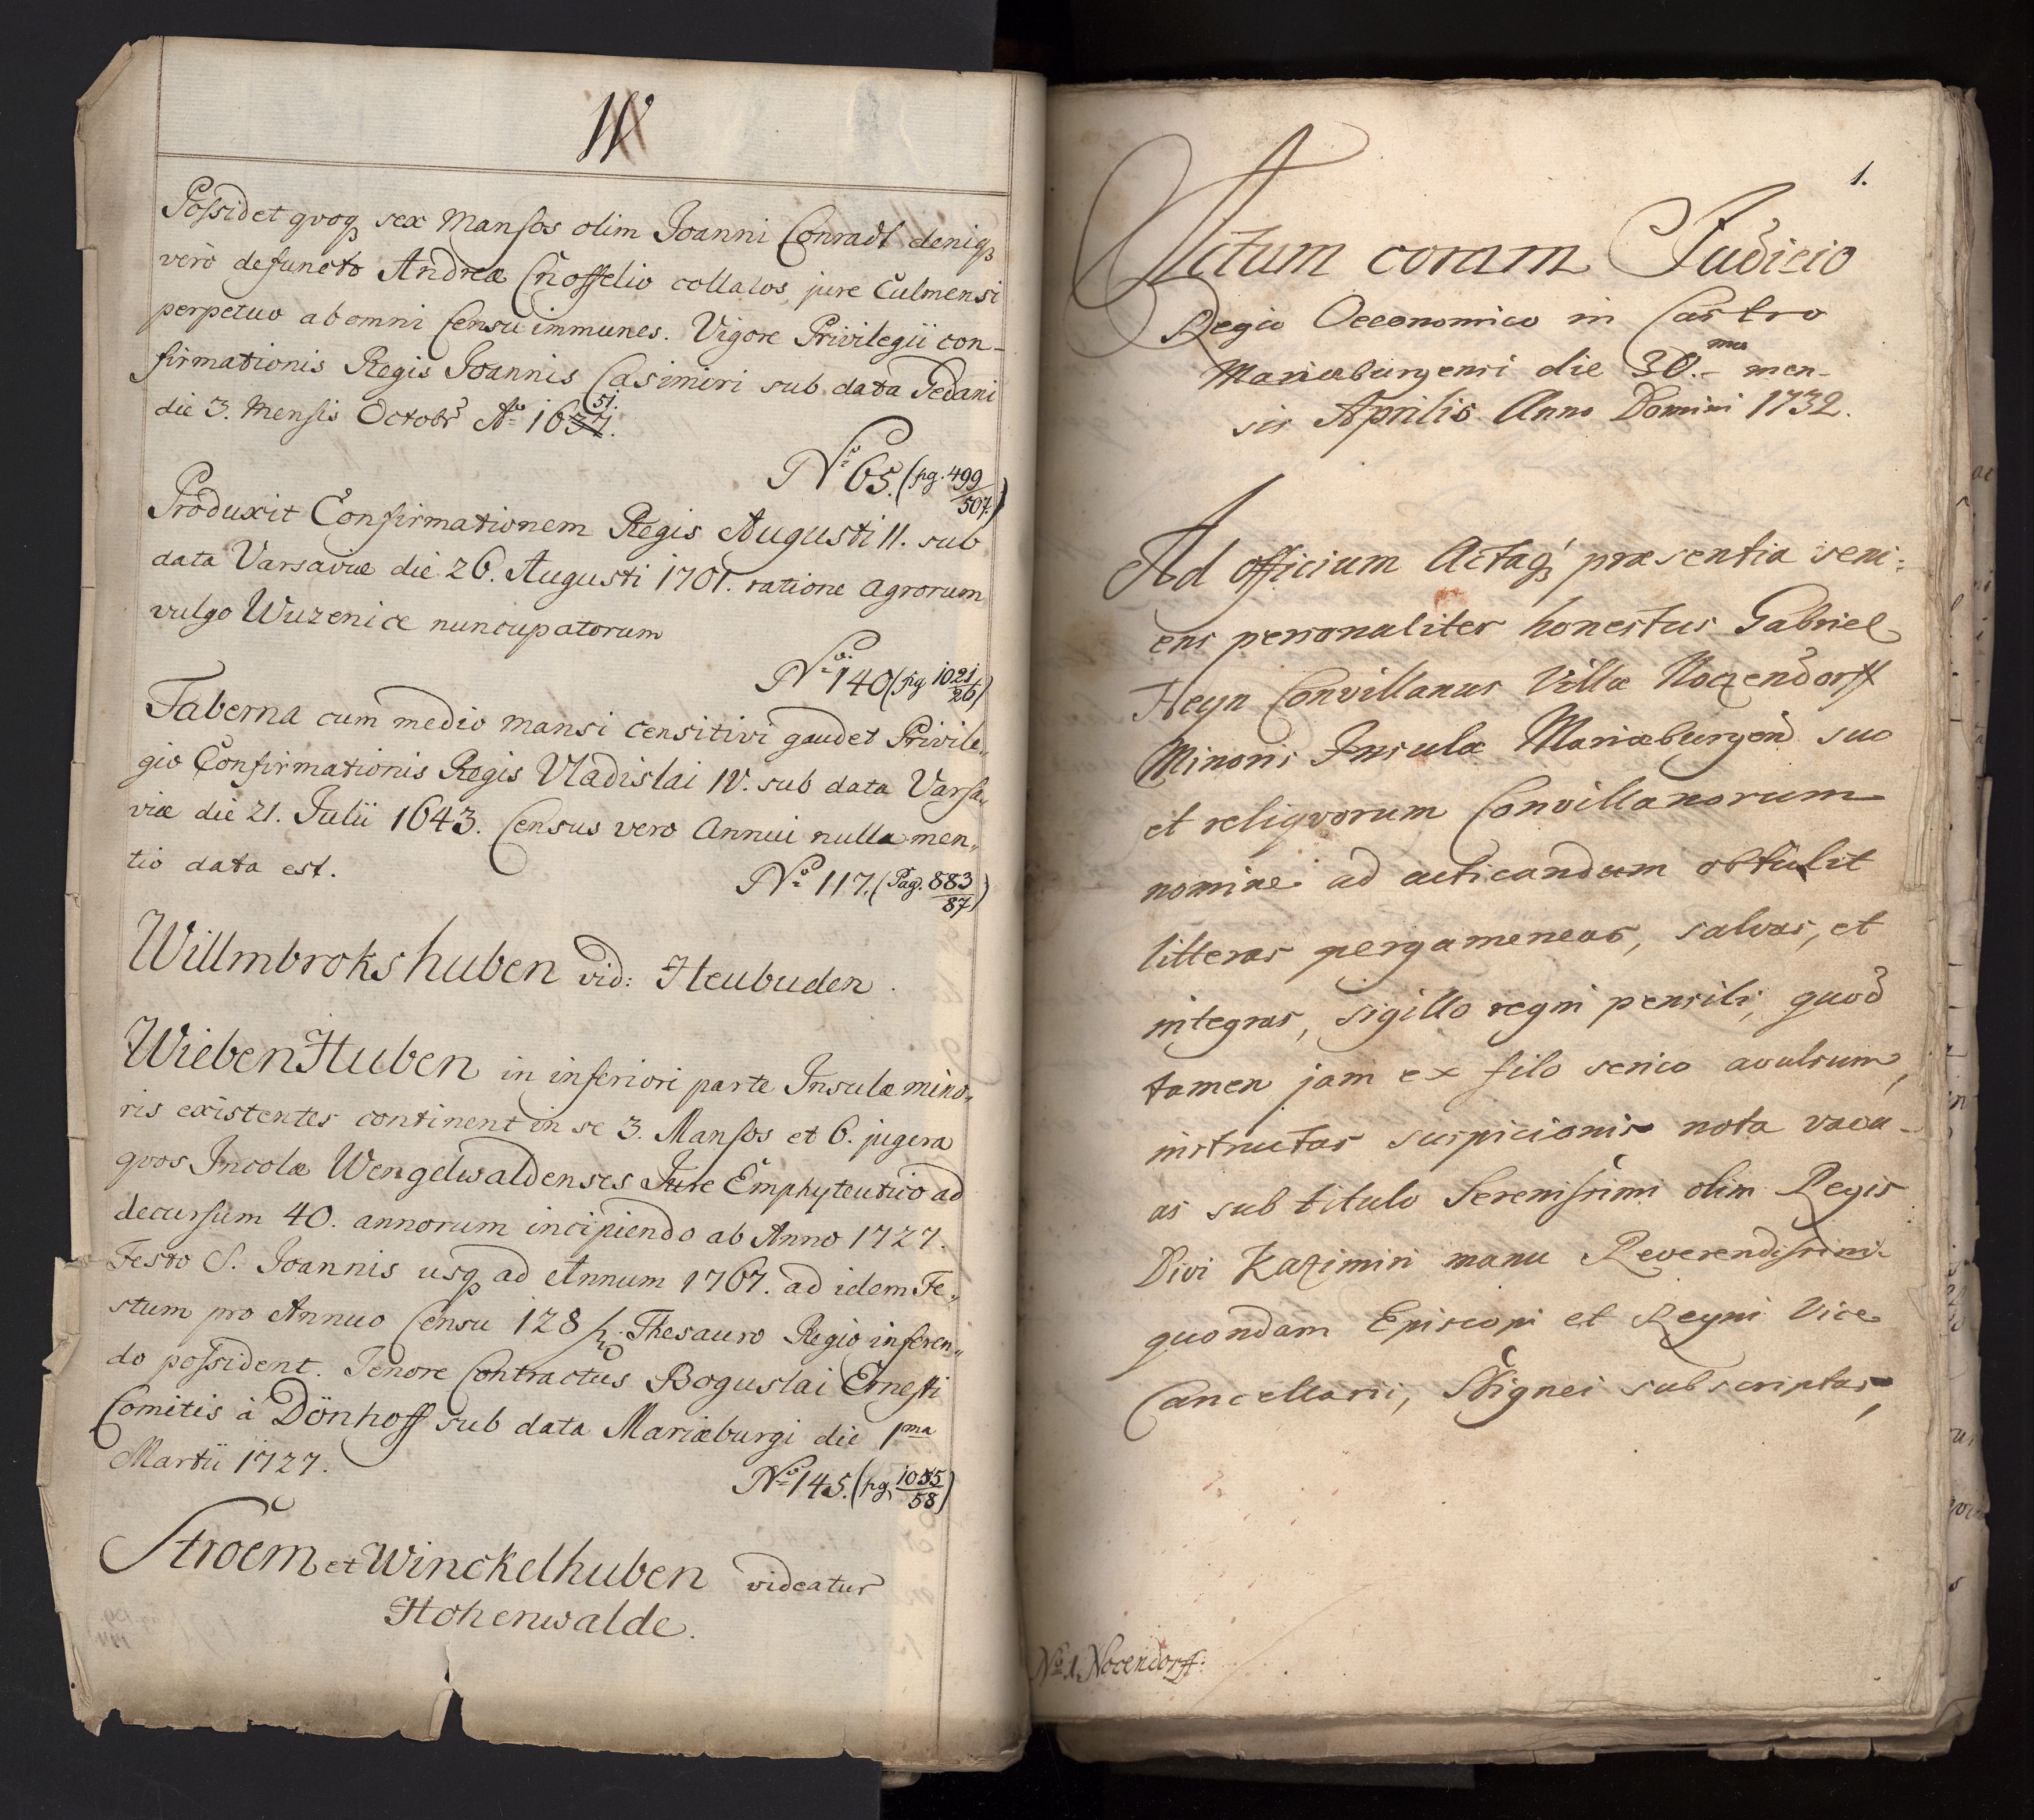 W
Possidet qvoq sex Mansos olim Joanni Conradt deniq
verò defuncto Andreæ Cnoffelio collatos jure Culmensi
perpetuo ab omni Censu immunes. Vigore Privilegii con-
firmationis Regis Joannis Casimiri sub data Gedani
die 3. Mensis Octobr Ao 1651.
No 65. (pg. 499/507.)
Produxit Confirmationem Regis Augusti II. sub
data Varsaviæ die 26. Augusti 1701. ratione agrorum
vulgo Wuzenice nuncupatorum
No. 140 (pg 1021/26)
Taberna cum medio mansi censitivi gaudet Privile„
gio Confirmationis Regis Vladislai IV. sub data Varsa„
viæ die 21. Julii 1643. Census vero Annui nulla men„
tio data est.
No 117. (Pag. 883/87)
Willmbrokshuben vid: Heubuden.
WiebenHuben in inferiori parte Insulæ mino„
ris existentes continent in se 3. Mansos et 6. jugera
qvos Incolæ Wengelwaldenses Jure Emphyteutico ad
decursum 40. annorum incipiendo ab Anno 1727.
Festo S. Joannis usq ad Annum 1767. ad idem Fe„
stum pro Annuo Censu 128 Thesauro Regio inferen„
do possident. Tenore Contractus Boguslai Ernesti
Comitis à Dönhoff sub data Mariæburgi die 1ma
Martii 1727.
No 145. (pg. 1055/58)
Stroem et Winckelhuben videatur
Hohenwalde.
1.
Actum coram Judicio
Regio Oeconomico in Castro
Mariæburgensi die 30.ma men-
sis Aprilis Anno Domini 1732.
Ad Officium Actaq præsentia veni:
ens personaliter honestus Gabriel
Heyn Convillanus Villæ Noczendorff
Minoris Insulæ Mariæburgen suo
et reliqvorum Convillanorum
nomine ad acticandum obtulit
litteras pergameneas, salvas, et
integras, sigillo regni pensili, quod
tamen jam ex filo serico avulsum,
instructas suspicionis nota vacu-
as sub titulo Serenissimi olim Regis
Divi Kazimiri manu Reverendissimi
quondam Episcopi et Regni Vice
Cancellarii, subscriptas,
No 1. Nocendorff: